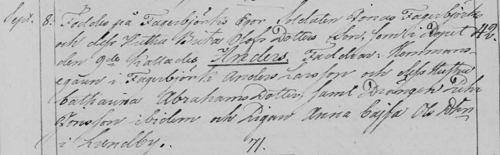 Sept. 8. Föddes på Fagerbjörkis Egor Soldaten Jonas Fagerbjörk
och dess Hustru Brita Olofs Dotters Son, som i Dopet 42.
den 9de kallades Anders. Faddrar:
i Fagerbjörki Anders Larsson och dess Hustru
Catharina Abrahams Dotter, samt Drängen
Jonsson ibidem och Pigan Anna Cajsa Ols Dotter
i Lundby. 71.